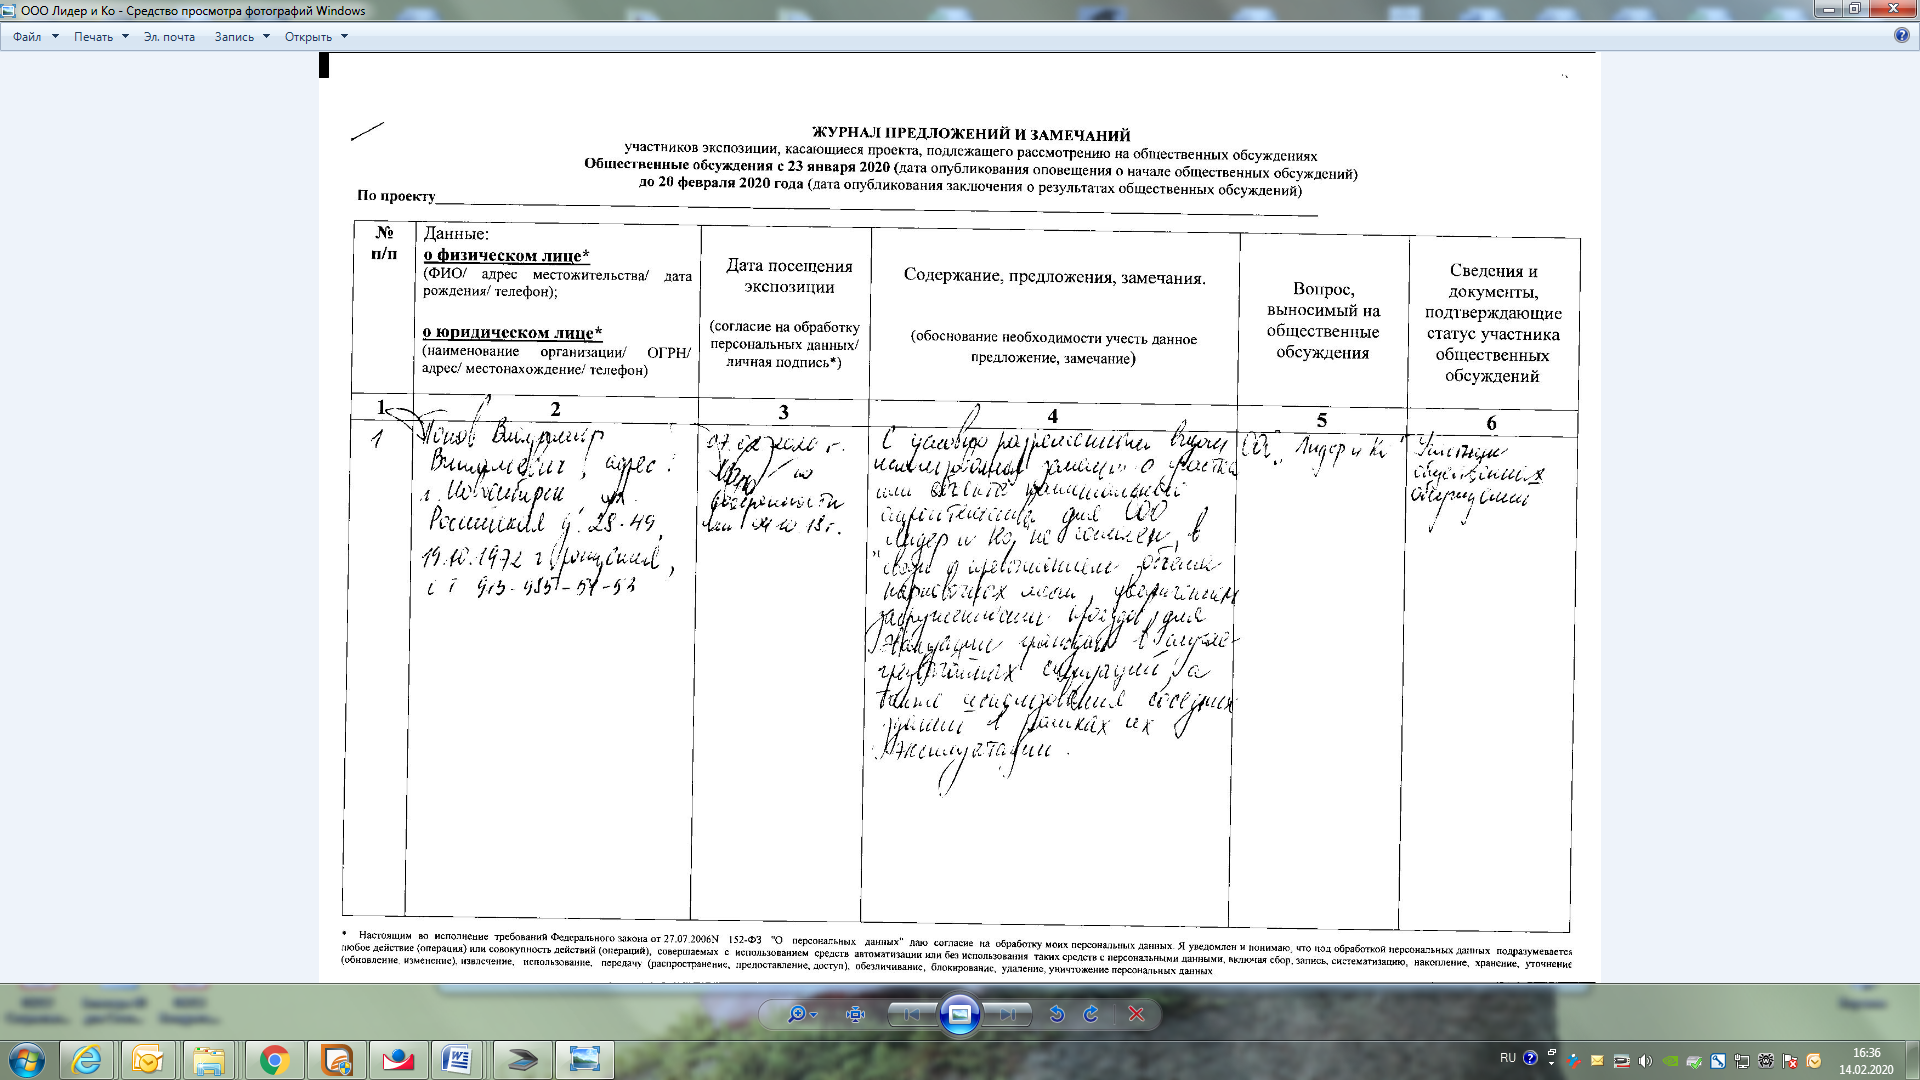 ООО Лидер и Ко - Средство просмотра фотографий Windows
Файл Печать Эл. почта Запись Открыть
ЖУРНАЛ ПРЕДЛОЖЕНИЙ И ЗАМЕЧАНИЙ
участников экспозиции, касающиеся проекта, подлежащего рассмотрению на общественных обсуждениях
Общественные обсуждения с 23 января 2020 (дата опубликования оповещения о начале общественных обсуждений)
до 20 февраля 2020 года (дата опубликования заключения о результатах общественных обсуждений)
По проекту
№
п/п
Данные:
о физическом лице*
(ФИО/ адрес местожительства/ дата
рождения/ телефон);
о юридическом лице*
(наименование организации/ ОГРН/
адрес/ местонахождение/ телефон)
Дата посещения
экспозиции
(согласие на обработку
персональных данных/
личная подпись*)
Содержание, предложения, замечания.
(обоснование необходимости учесть данное
предложение, замечание)
Вопрос,
выносимый на
общественные
обсуждения
Сведения и
документы,
подтверждающие
статус участника
общественных
обсуждений
1 2 3 4 5 6
1
Владимир
адрес:
г. Новосибирск ул.
Российская д.
19.10.1972 г рождения,
г.
по
доверенности
С условно разрешенным видом
использования земельного участка
или объекта капитального
строительства для ООО
"Лидер и Ко" не согласен, в
связи с превышением объема
парковочных мест, увеличением
проездов для
эвакуации граждан в случае
чрезвычайных ситуаций, а
также использования соседних
зданий в рамках их
эксплуатации.
"Лидер и Ко"
Участник
общественных
обсуждений
* Настоящим во исполнение требований Федерального закона от 27.07.2006N 152-ФЗ "О персональных данных" даю согласие на обработку моих персональных данных. Я уведомлен и понимаю, что под обработкой персональных данных подразумевается
любое действие (операция) или совокупность действий (операций), совершаемых с использованием средств автоматизации или без использования таких средств с персональными данными, включая сбор, запись, систематизацию, накопление, хранение, уточнение
(обновление, изменение), извлечение, использование, передачу (распространение, предоставление, доступ), обезличивание, блокирование, удаление, уничтожение персональных данных
RU
16:36
14.02.2020